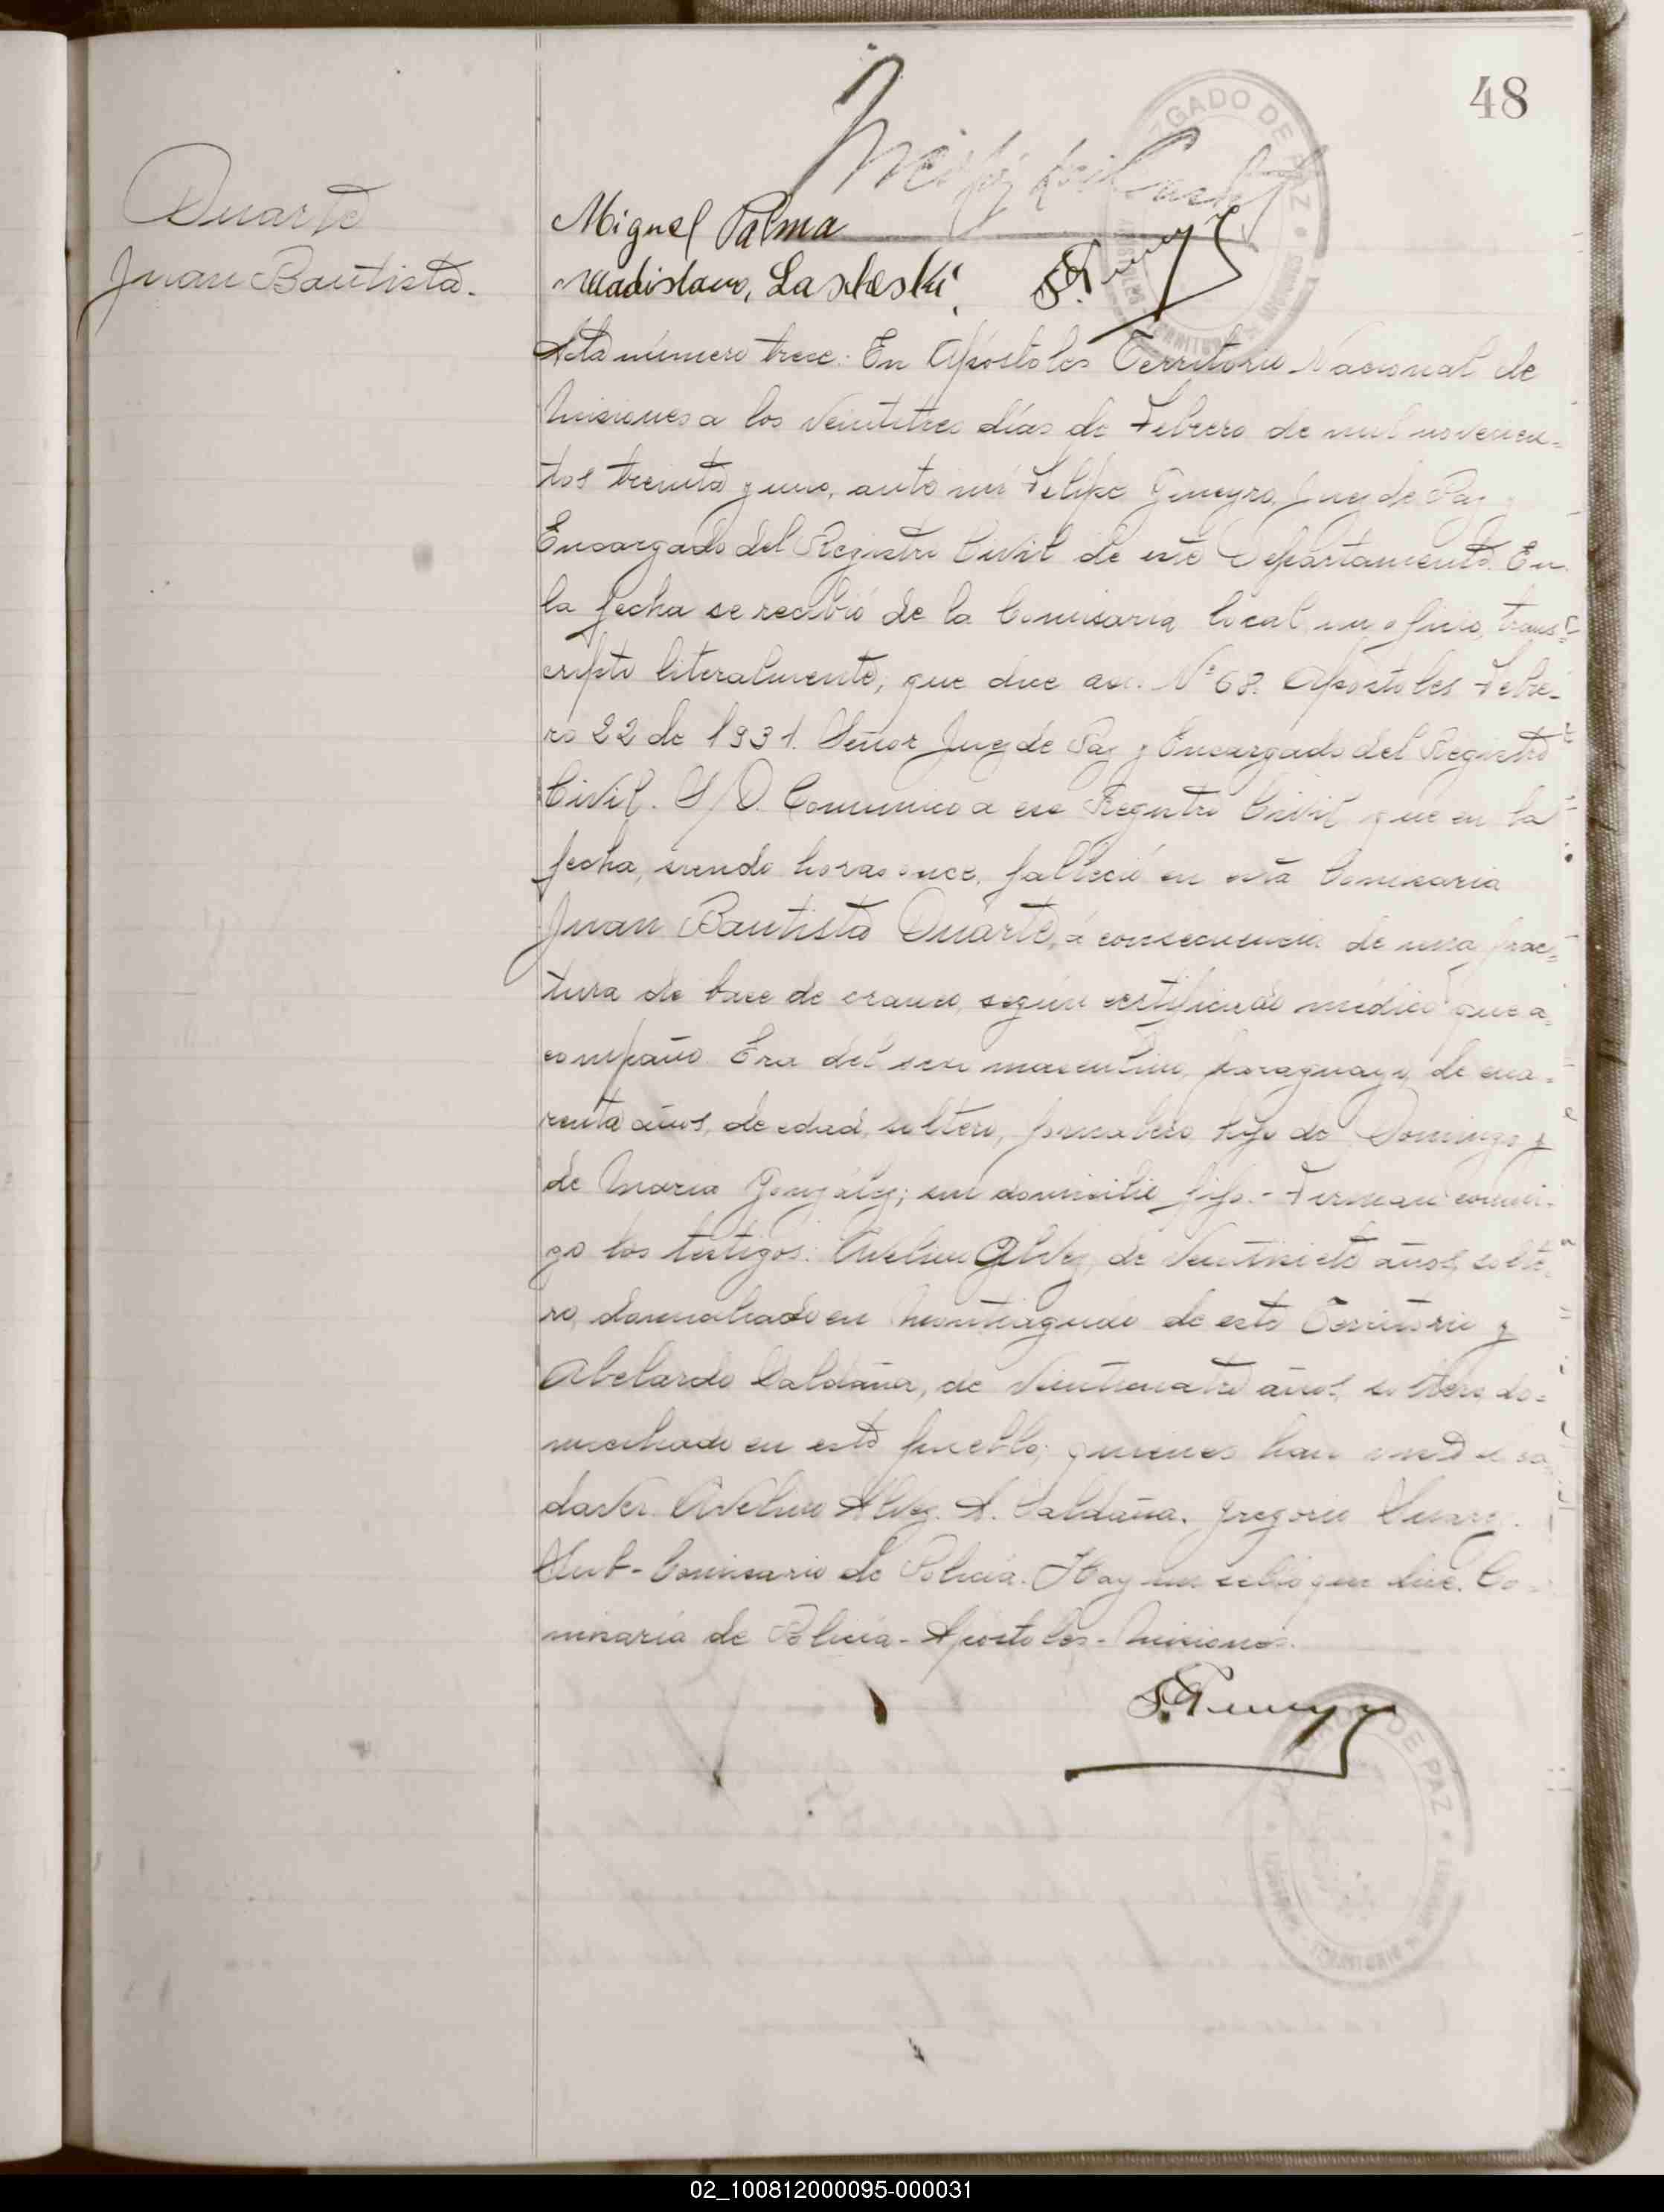 48
Duarte
Juan Bautista.
Miguel Palma
Acta número trece: En Apóstoles Territorio Nacional de
Misiones a los veintitres días de Febrero de mil novecien-
tos treinta y uno, ante mí Felipe Gineyro, Juez de Paz y
Encargado del Registro Civil de este Departamento. En
la fecha se recibió de la Comisaria local, un oficio, trans-
cripto literalmente, que dice así: Nº 68. Apóstoles Febre-
ro 22 de 1931. Señor Juez de Paz y Encargado del Registro
Civil. S/D. Comunico a ese Registro Civil que en la
fecha, siendo horas once, falleció en esta Comisaria
Juan Bautista Duarte, a consecuencia de una frac-
tura de base de craneo, según certificado médico que a-
compaño. Era del sexo masculino, paraguayo, de cua-
renta años, de edad, soltero, jornalero, hijo de Domingo y
de María González; sin domicilio fijo.- Firman conmi-
go los testigos: Avelino Alvez, de veintisiete años, solte-
ro, domiciliado en Monteagudo de este Territorio y
Abelardo Saldaña, de veinticuatro años, soltero, do-
miciliado en este pueblo; quienes han visto el ca-
daver. Avelino Alvez. A. Saldaña. Gregorio Suarez.
Sub-Comisario de Policía. Hay un sello que dice: Co-
misaría de Policía - Apóstoles - Misiones.
JUZGADO DE PAZ
DE PAZ
02_100812000095-000031